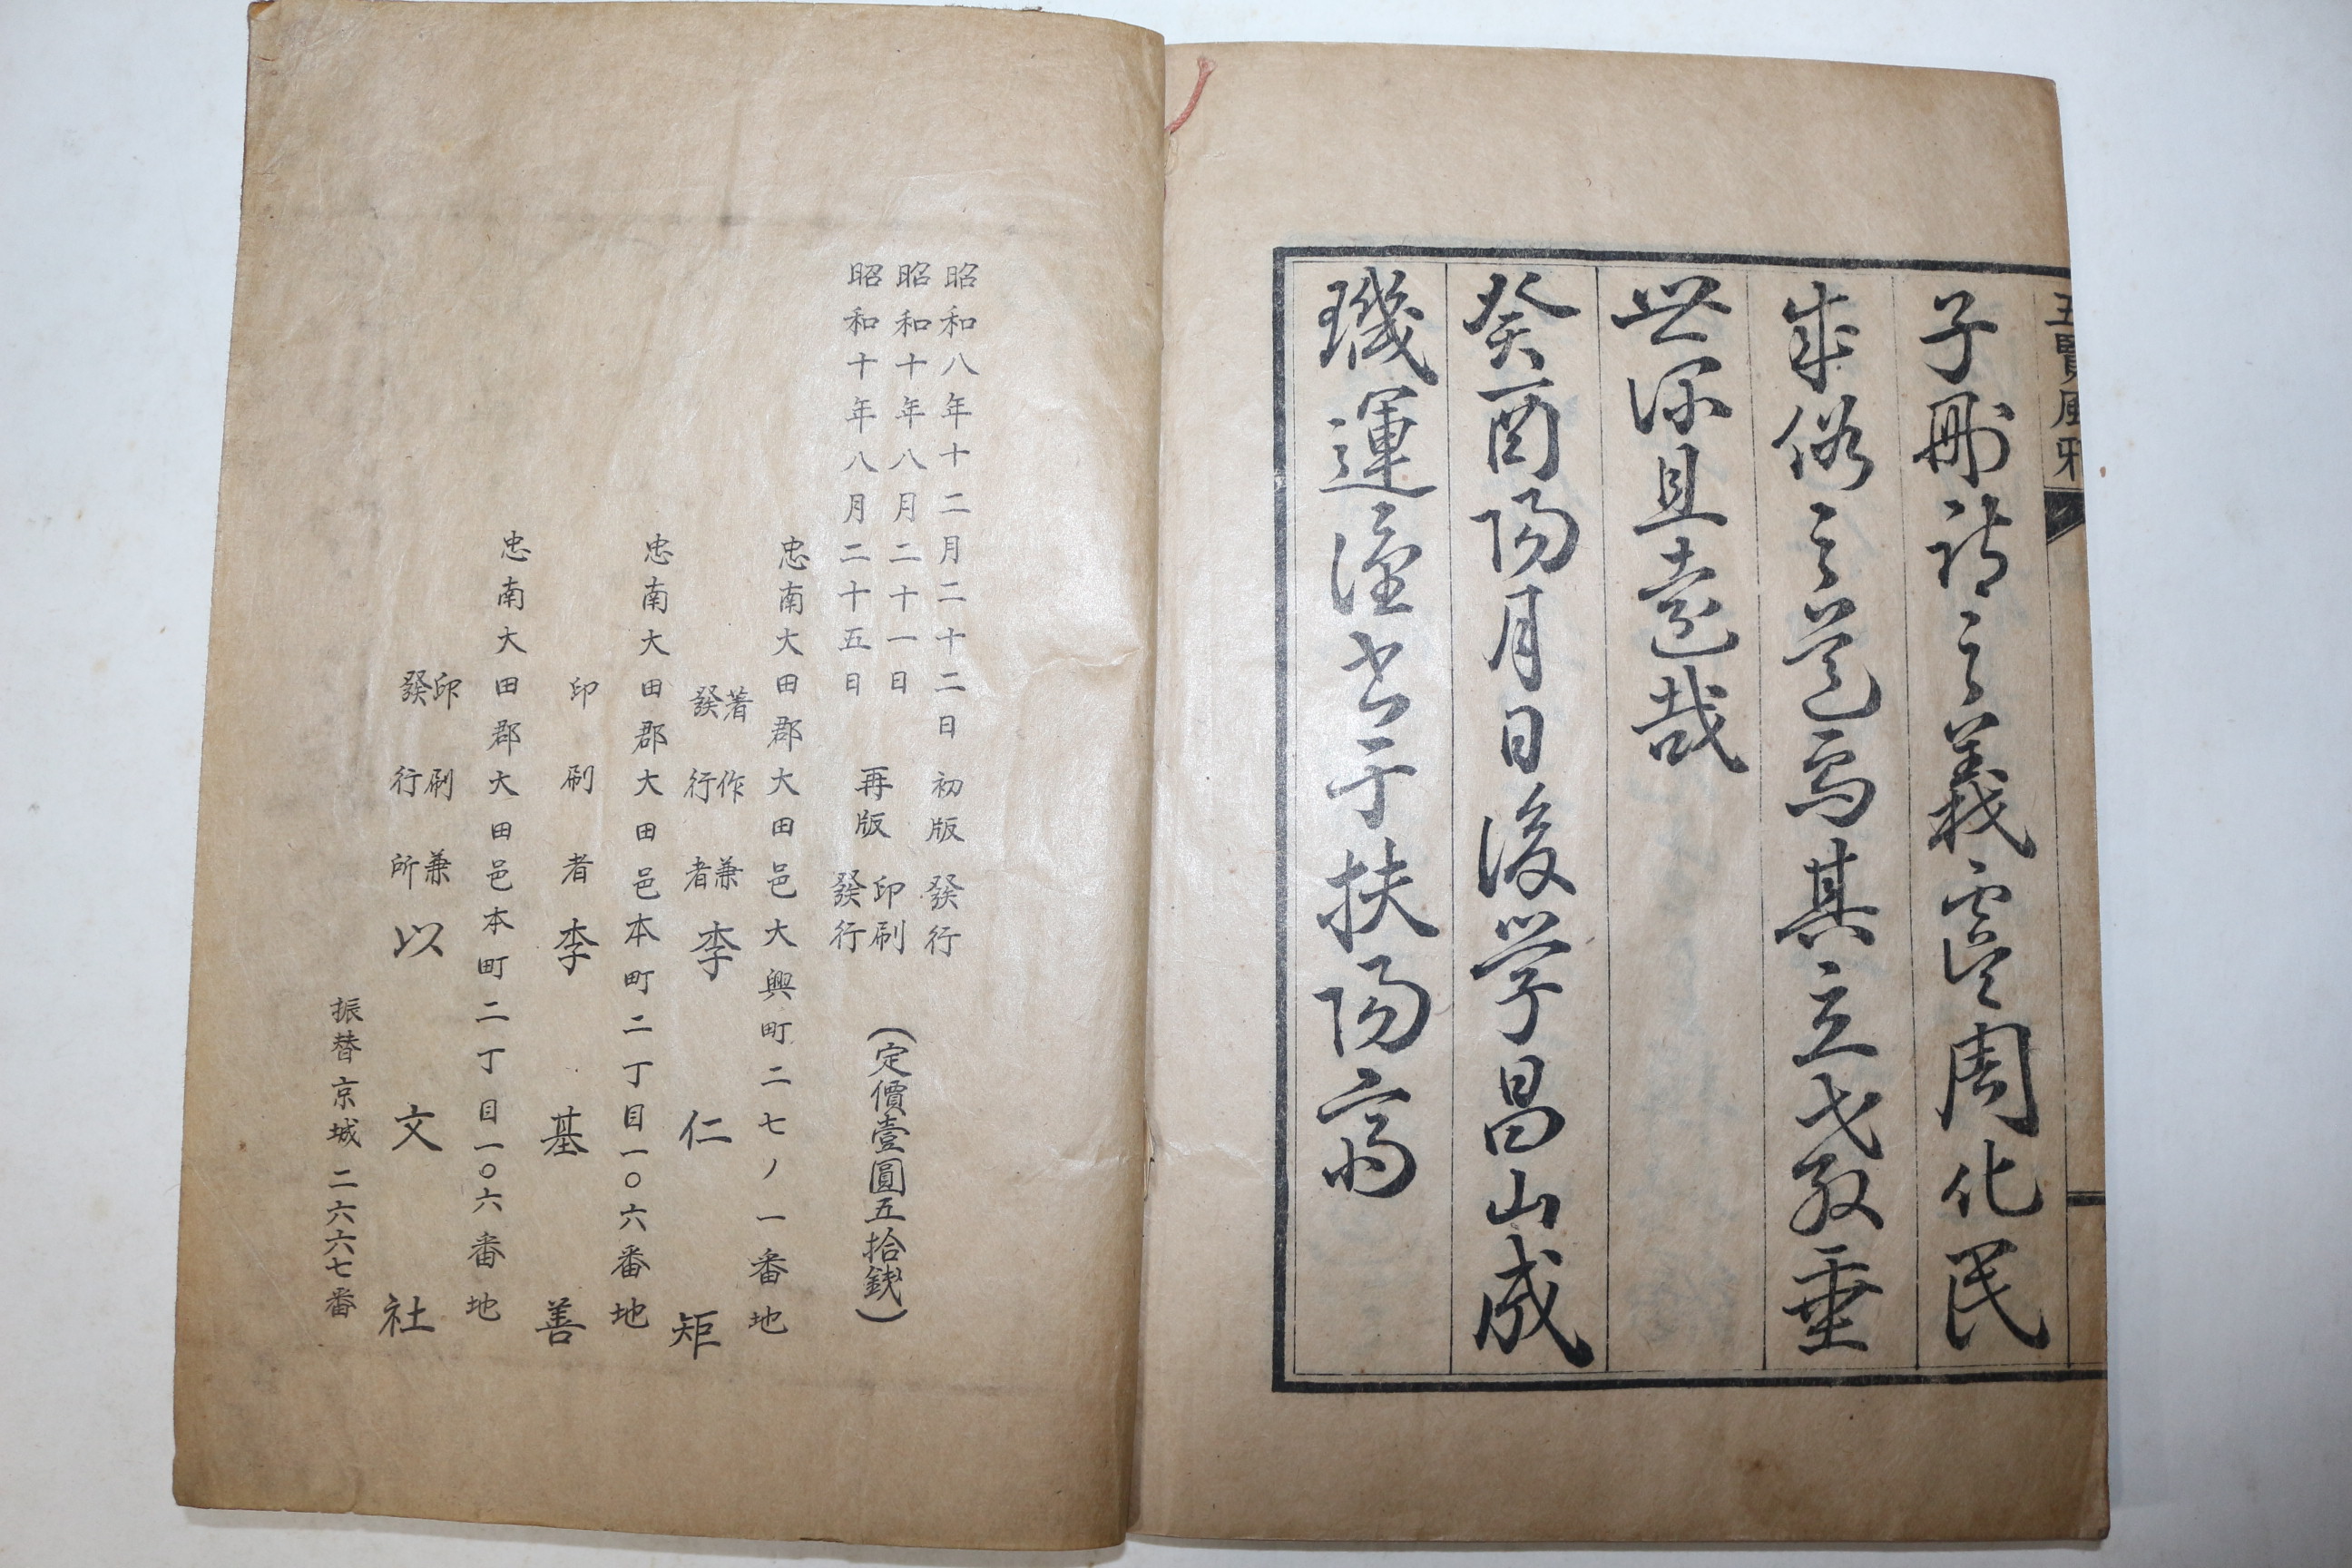 五賢風雅
子刪詩之義虞周化民
成俗之道焉其立言敎垂
世深且遠哉
癸酉陽月日後学昌山成
璣運謹書于扶陽齋
昭和八年十二月二十二日 初版 發行
昭和十年八月二十一日 再版 印刷
昭和十年八月二十五日 發行
(定價壹圓五拾錢)
忠南大田郡大田邑大興町二七ノ一番地
著作兼
發行者 李仁矩
忠南大田郡大田邑本町二丁目一〇六番地
印刷者 李基善
忠南大田郡大田邑本町二丁目一〇六番地
印刷兼
發行所 以文社
振替京城二六六七番